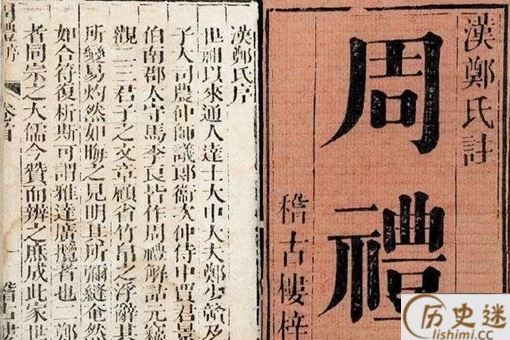 漢鄭氏註
周禮
稽古樓梓
漢鄭氏序
世祖以來通人達士大中大夫鄭少贛及
子大司農仲師議郎衞次仲侍中賈君景
伯南郡太守馬季長皆作周禮解詁元竊
觀二三君子之文章顧省竹帛之浮辭其
所變易灼然如晦之見明其所彌縫奄然
如合符復析斯可謂雅達廣攬者也二鄭
者同宗之大儒今贊而辨之庶成此家世
周禮序 卷首 一 稽古樓
历史迷
lishimi.cc